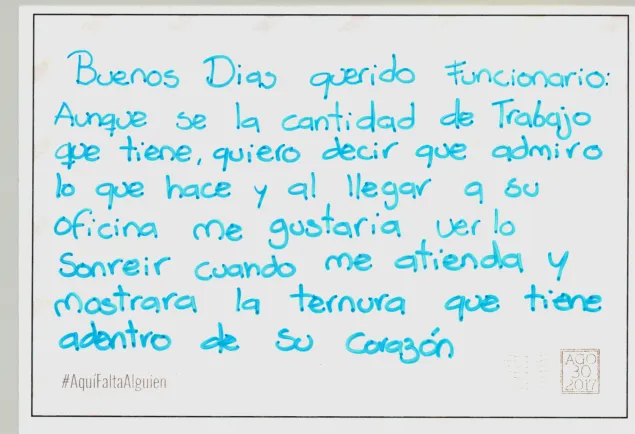 Buenos Dias querido Funcionario:
Aunque se la cantidad de Trabajo
que tiene, quiero decir que admiro
lo que hace y al llegar a su
oficina me gustaria ver lo
Sonreir cuando me atienda y
mostrara la ternura que tiene
adentro de su Corazón
#AquíFaltaAlguien
AGO
30
2017